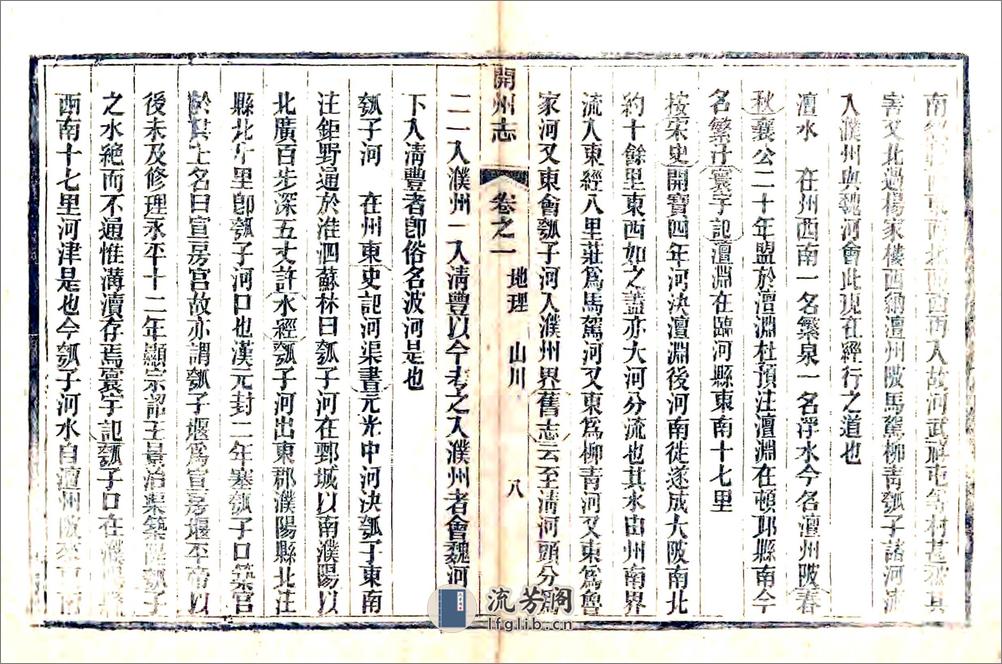 害又北過楊家樓西納澶州陂馬駕柳青瓠子諸河流
入濮州與魏河會此現在經行之道也
澶水 在州西南一名繁泉一名浮水今名澶州陂春
秋襄公二十年盟於澶淵杜預注澶淵在頓邱縣南今
名繁汙寰宇記澶淵在臨河縣東南十七里
按宋史開寶四年河決澶淵後河南徙遂成大陂南北
約十餘里東西如之蓋亦大河分流也其水由州南界
流入東經八里莊為馬駕河又東為柳青河又東為魯
家河又東會瓠子河入濮州界舊志云至清河頭分為
開州志 卷之一 地理 山川 八
二一入濮州一入清豐以今考之入濮州者會魏河
下入清豐者卽俗名波河是也
瓠子河 在州東史記河渠書元光中河決瓠子東南
注鉅野通於淮泗蘇林曰瓠子河在鄄城以南濮陽以
北廣百步深五丈許水經瓠子河出東郡濮陽縣北注
縣北十里卽瓠子河口也漢元封二年塞瓠子口築宮
於其上名曰宣房宮故亦謂瓠子堰為宣房堰平帝以
後未及修理永平十二年顯宗詔王景治渠築隄瓠子
之水絕而不通惟溝瀆存焉寰宇記瓠子口在濮陽縣
西南十七里河津是也今瓠子河水自澶州陂
流芳阁
lfglib.cn